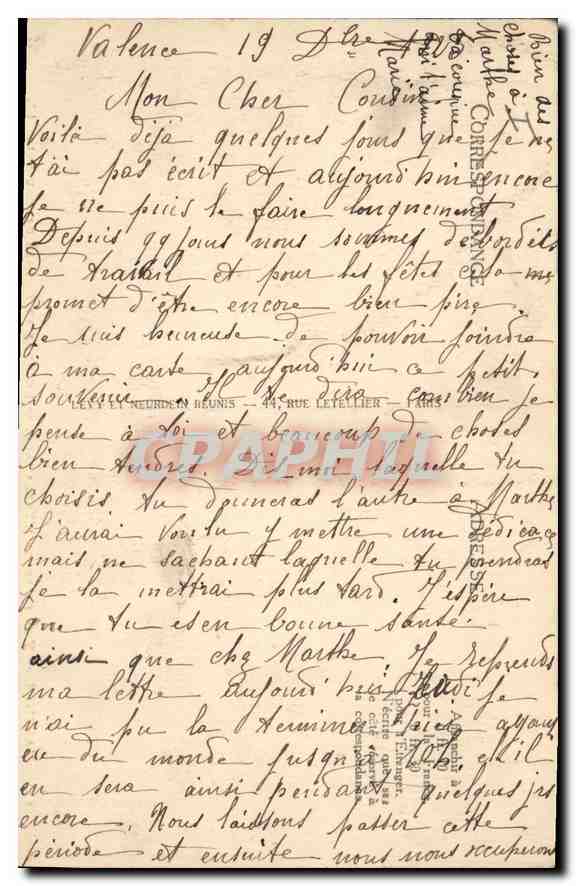 Valence 19 Dbre
Mon Cher Cousin
Voilà déjà quelques jours que je ne
t'ai pas écrit et aujourd'hui encore
je ne puis le faire longuement
Depuis qq jours nous sommes débordés
de travail et pour les fêtes cela me
promet d'être encore bien pire.
Je suis heureuse de pouvoir joindre
à ma carte aujourd'hui ce petit
souvenir. Il te dira combien je
pense à toi et beaucoup de choses
bien tendres. Dis-m laquelle tu
choisis tu donneras l'autre à Marthe
J'aurai voulu y mettre une dédicace
mais ne sachant laquelle tu prendras
je la mettrai plus tard. J'espère
que tu es en bonne santé.
ainsi que chez Marthe. Je reprends
ma lettre aujourd'hui Jeudi je
n'ai pu la terminer ayant
eu du monde jusqu'
en sera ainsi pendant quelques jrs
encore. Nous laissons passer cette
période et ensuite nous nous occuperons
Bien des
choses à
Marthe
Ta cousine
qui t'aime
Marie
CORRESPONDANCE
LEVY ET NEURDEIN REUNIS — 44, RUE LETELLIER — PARIS
CPAPHIL
ADRESSE
Affranchir à
pour la France
pour l'Etranger.
N'écrire que sur
le côté réservé à
la correspondance.